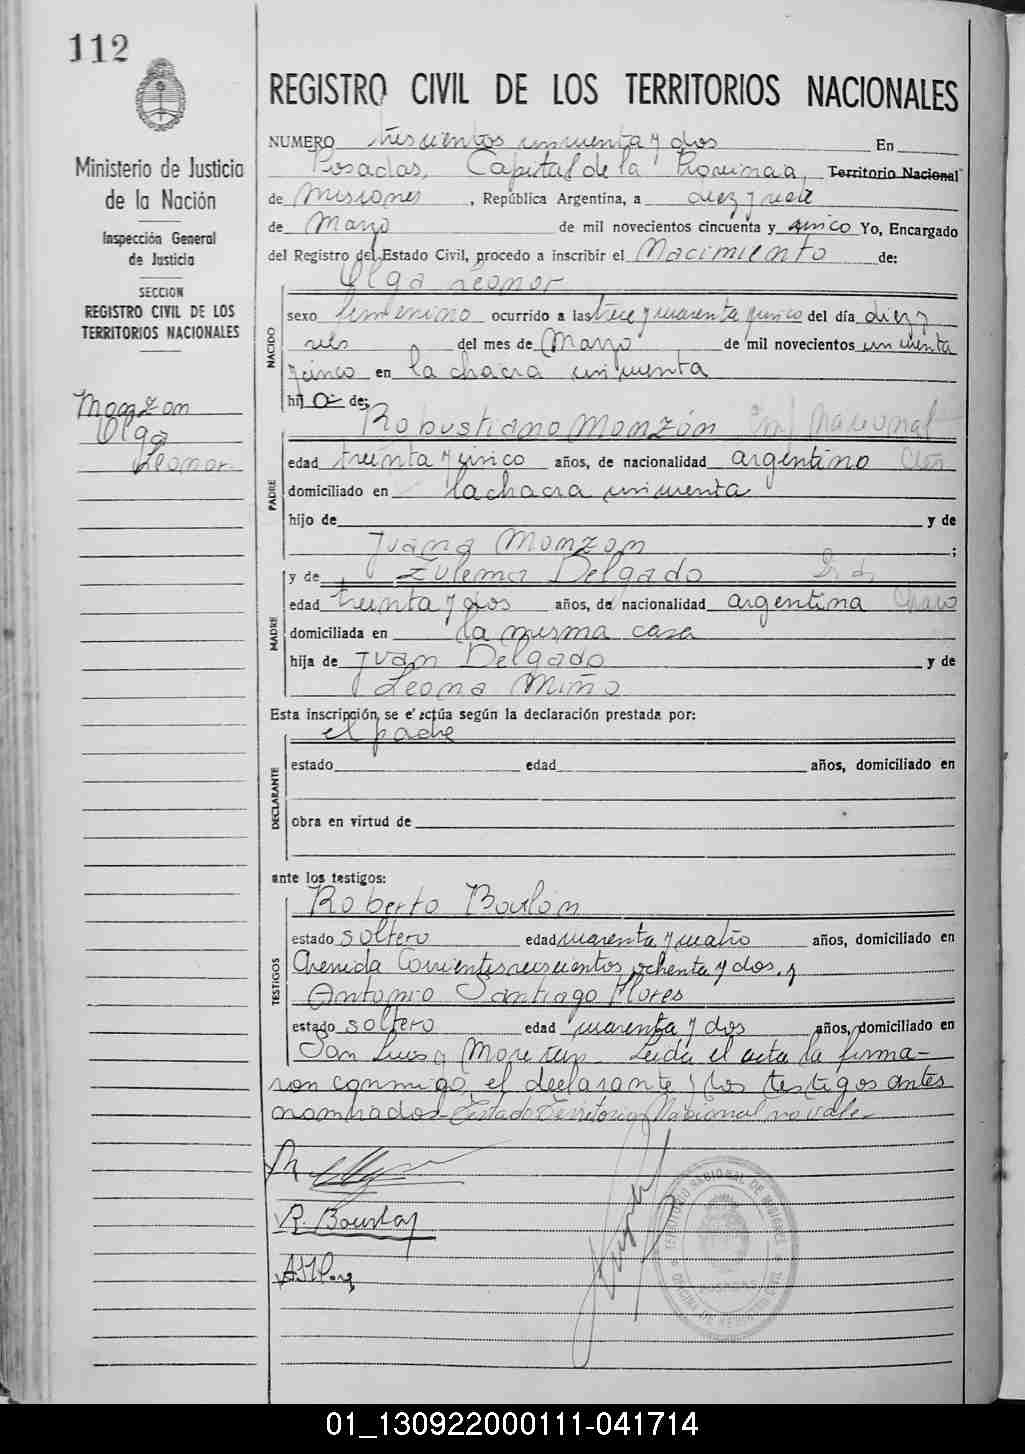 112
REGISTRO CIVIL DE LOS TERRITORIOS NACIONALES
Ministerio de Justicia
de la Nación
Inspección General
de Justicia
SECCION
REGISTRO CIVIL DE LOS
TERRITORIOS NACIONALES
Monzon
Olga
Leonor
NUMERO trescientos cincuenta y dos En
Posadas, Capital de la Provincia, Territorio Nacional
de Misiones, República Argentina, a diez y seis
de Marzo de mil novecientos cincuenta y cinco Yo, Encargado
del Registro del Estado Civil, procedo a inscribir el Nacimiento de:
Olga Leonor
NACIDO
sexo femenino ocurrido a las trece y cuarenta y cinco del día diez y
seis del mes de Marzo de mil novecientos cincuenta
y cinco en la chacra cincuenta
hija de:
Robustiano Monzón Nacional
PADRE
edad treinta y cinco años, de nacionalidad argentino
domiciliado en la chacra cincuenta
hijo de y de
Juana Monzon ;
MADRE
y de Zulema Delgado
edad treinta y dos años, de nacionalidad argentina Chaco
domiciliada en la misma casa
hija de Juan Delgado y de
Leona Miño
Esta inscripción se efectúa según la declaración prestada por:
el padre
DECLARANTE
estado edad años, domiciliado en
obra en virtud de
ante los testigos:
Roberto Bourlon
TESTIGOS
estado soltero edad cuarenta y cuatro años, domiciliado en
Avenida Corrientes seiscientos ochenta y dos, y
Antonio Santiago Flores
estado soltero edad cuarenta y dos años, domiciliado en
San Luis y Moreten. Leida el acta la firma-
ron conmigo, el declarante y los testigos antes
nombrados - Testado Territorio Nacional no vale -
R. Bourlon
TERRITORIO NACIONAL DE MISIONES
OFICINA DE REGISTRO CIVIL
POSADAS
01_130922000111-041714